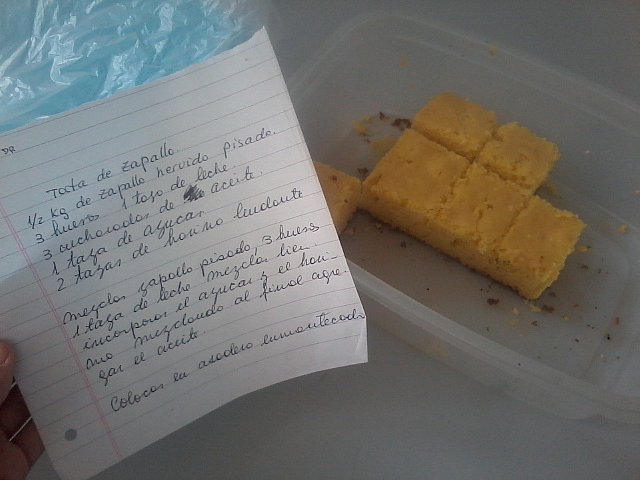 DR
Torta de zapallo.
1/2 kg de zapallo hervido pisado.
3 huevos. 1 taza de leche.
3 cucharadas de aceite.
1 taza de azucar.
2 tazas de harina leudante
Mezclar zapallo pisado, 3 huevos
1 taza de leche. Mezclar bien.
incorporar el azucar y el hari-
na mezclando al final agre-
gar el aceite.
Colocar en asadera enmantecada